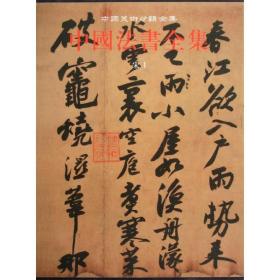 中國美術分類全集
中國法書全集
春江欲入户雨勢来
不已雨小屋如漁舟濛
水雲裏空庖煮寒菜
破竈燒濕葦那